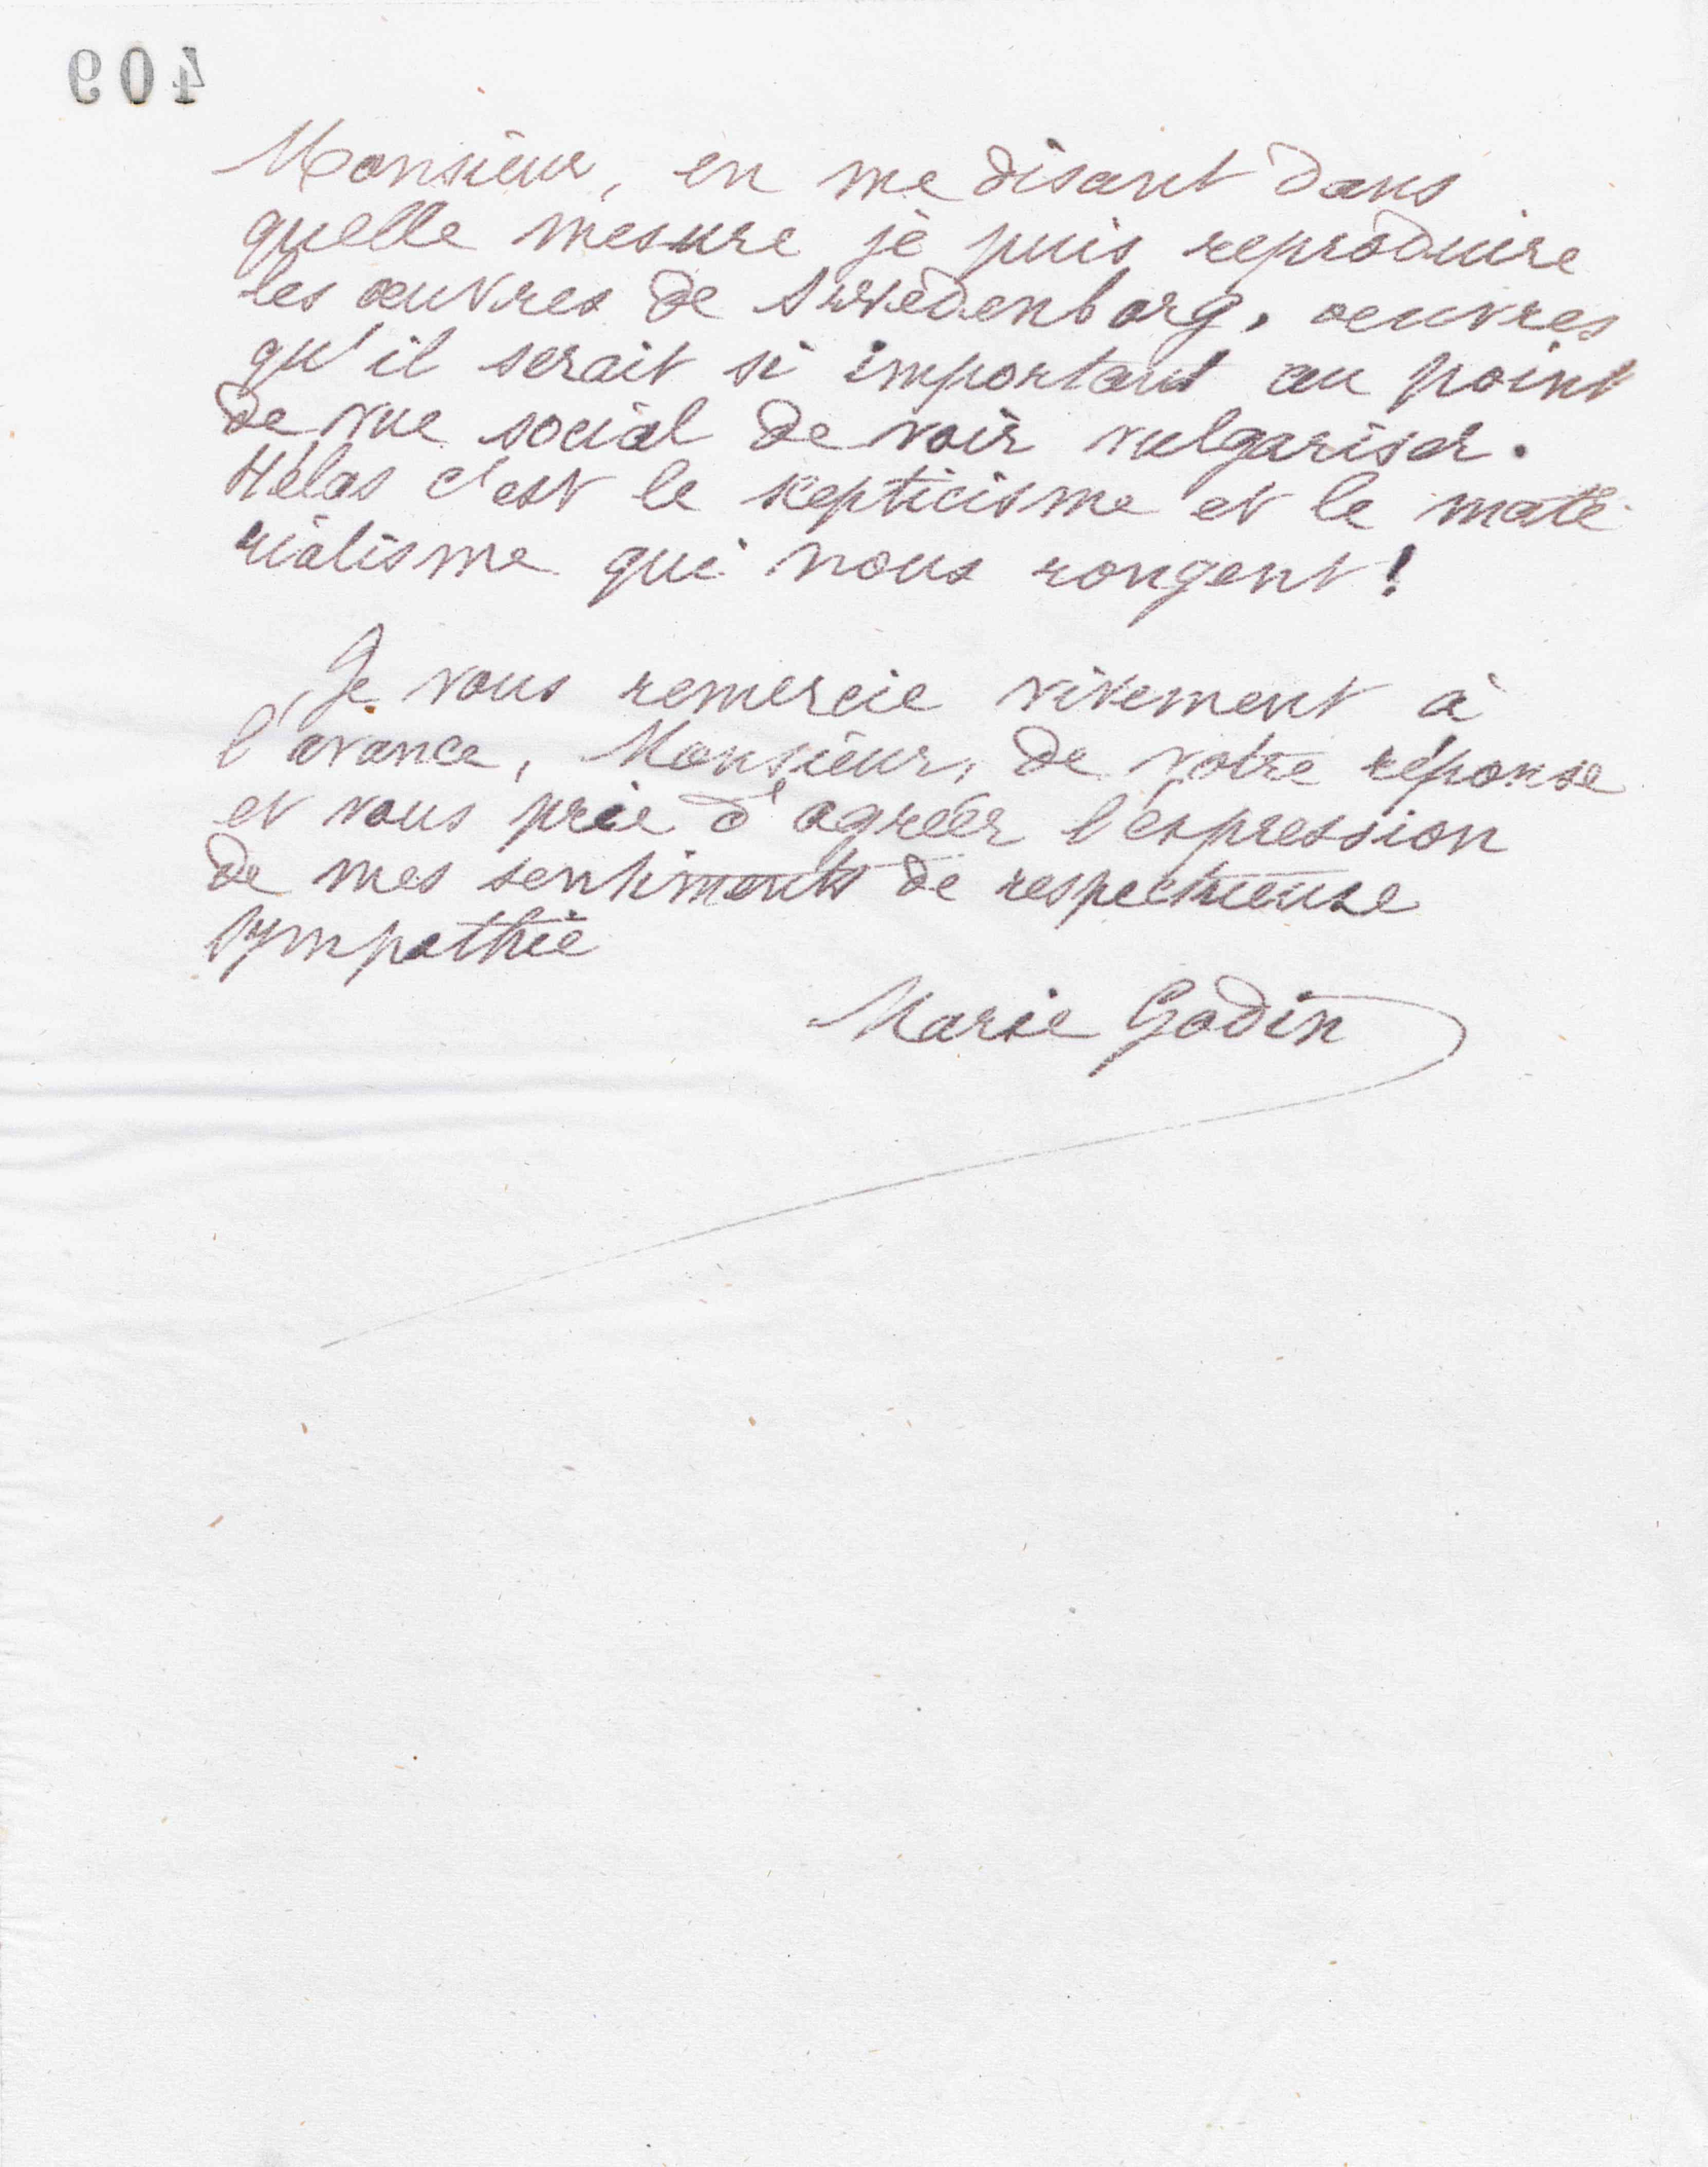 409
Monsieur, en me disant dans
quelle mesure je puis reproduire
les œuvres de Swedenborg, œuvres
qu'il serait si important au point
de vue social de voir vulgariser.
Hélas c'est le scepticisme et le maté-
rialisme qui nous rongent!
Je vous remercie vivement à
l'avance, Monsieur, de votre réponse
et vous prie d'agréer l'expression
de mes sentiments de respectueuse
sympathie
Marie Godin